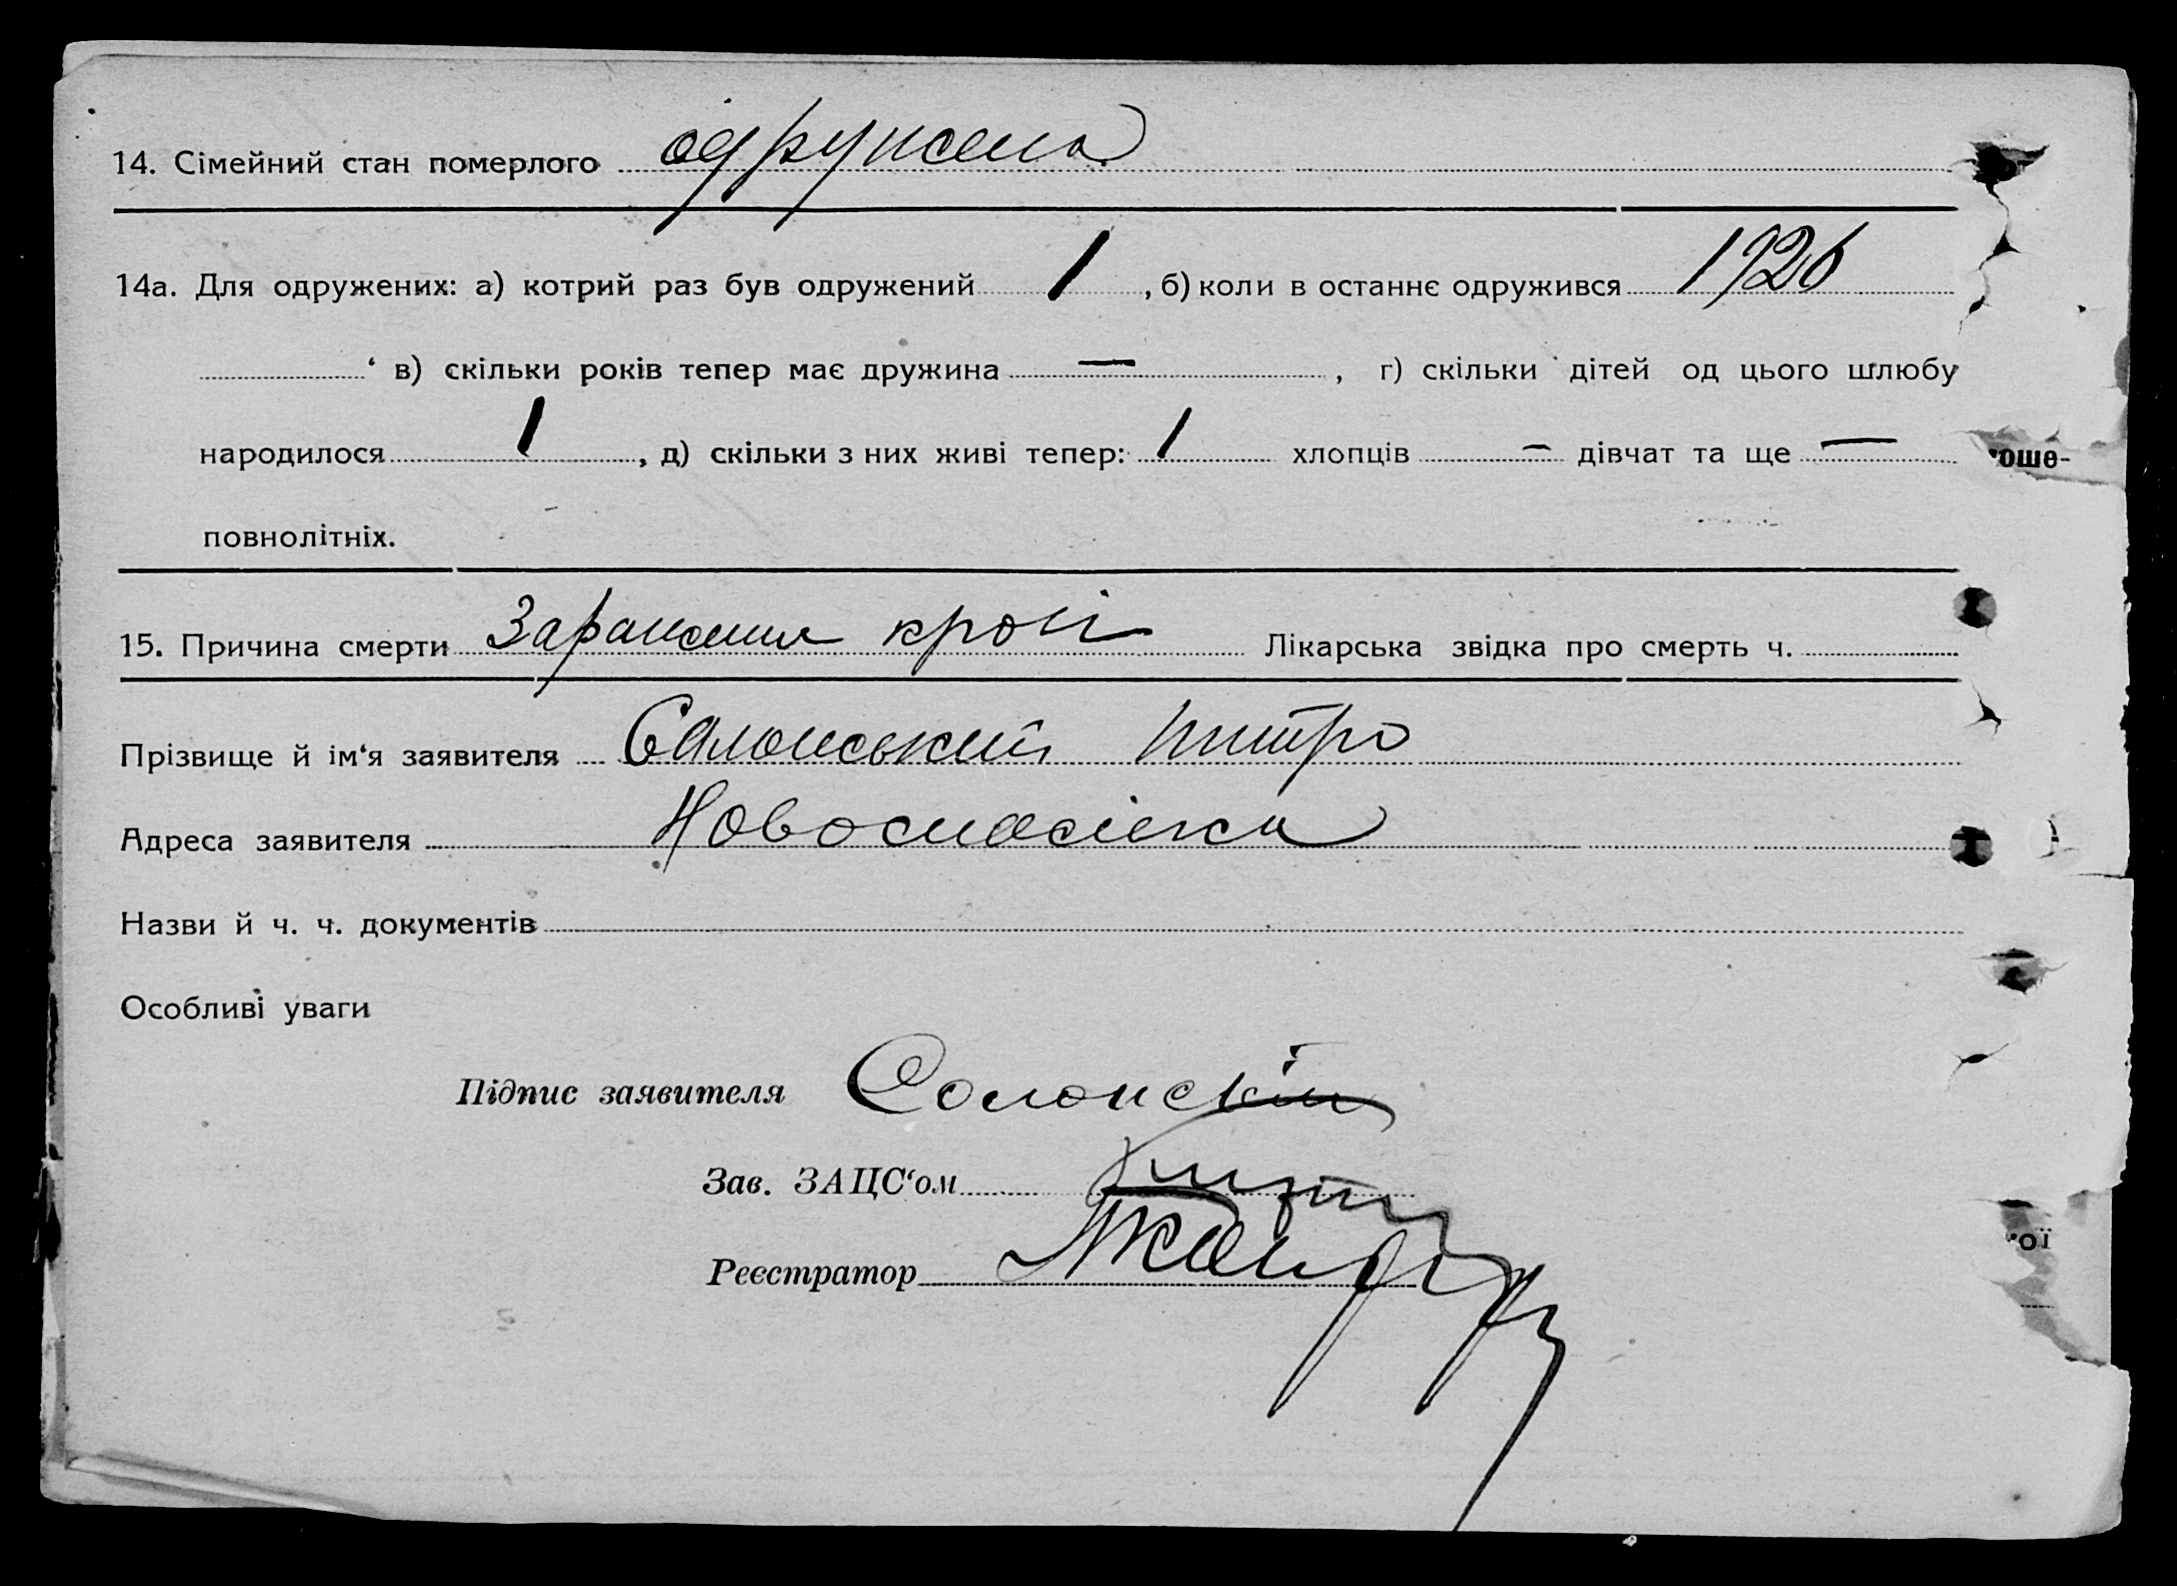 14. Сімейний стан померлого одружена
14а. Для одружених: а) котрий раз був одружений 1, б) коли в останнє одружився 1926
‘ в) скільки років тепер має дружина —, г) скільки дітей од цього шлюбу
народилося 1, д) скільки з них живі тепер: 1 хлопців — дівчат та ще —
повнолітніх.
15. Причина смерти Зараження крові Лікарська звідка про смерть ч.
Прізвище й ім‘я заявителя Салонський
Адреса заявителя Новоспасівка
Назви й ч. ч. документів
Особливі уваги
Підпис заявителя Солонскій
Зав. ЗАЦС‘ом
Реєстратор